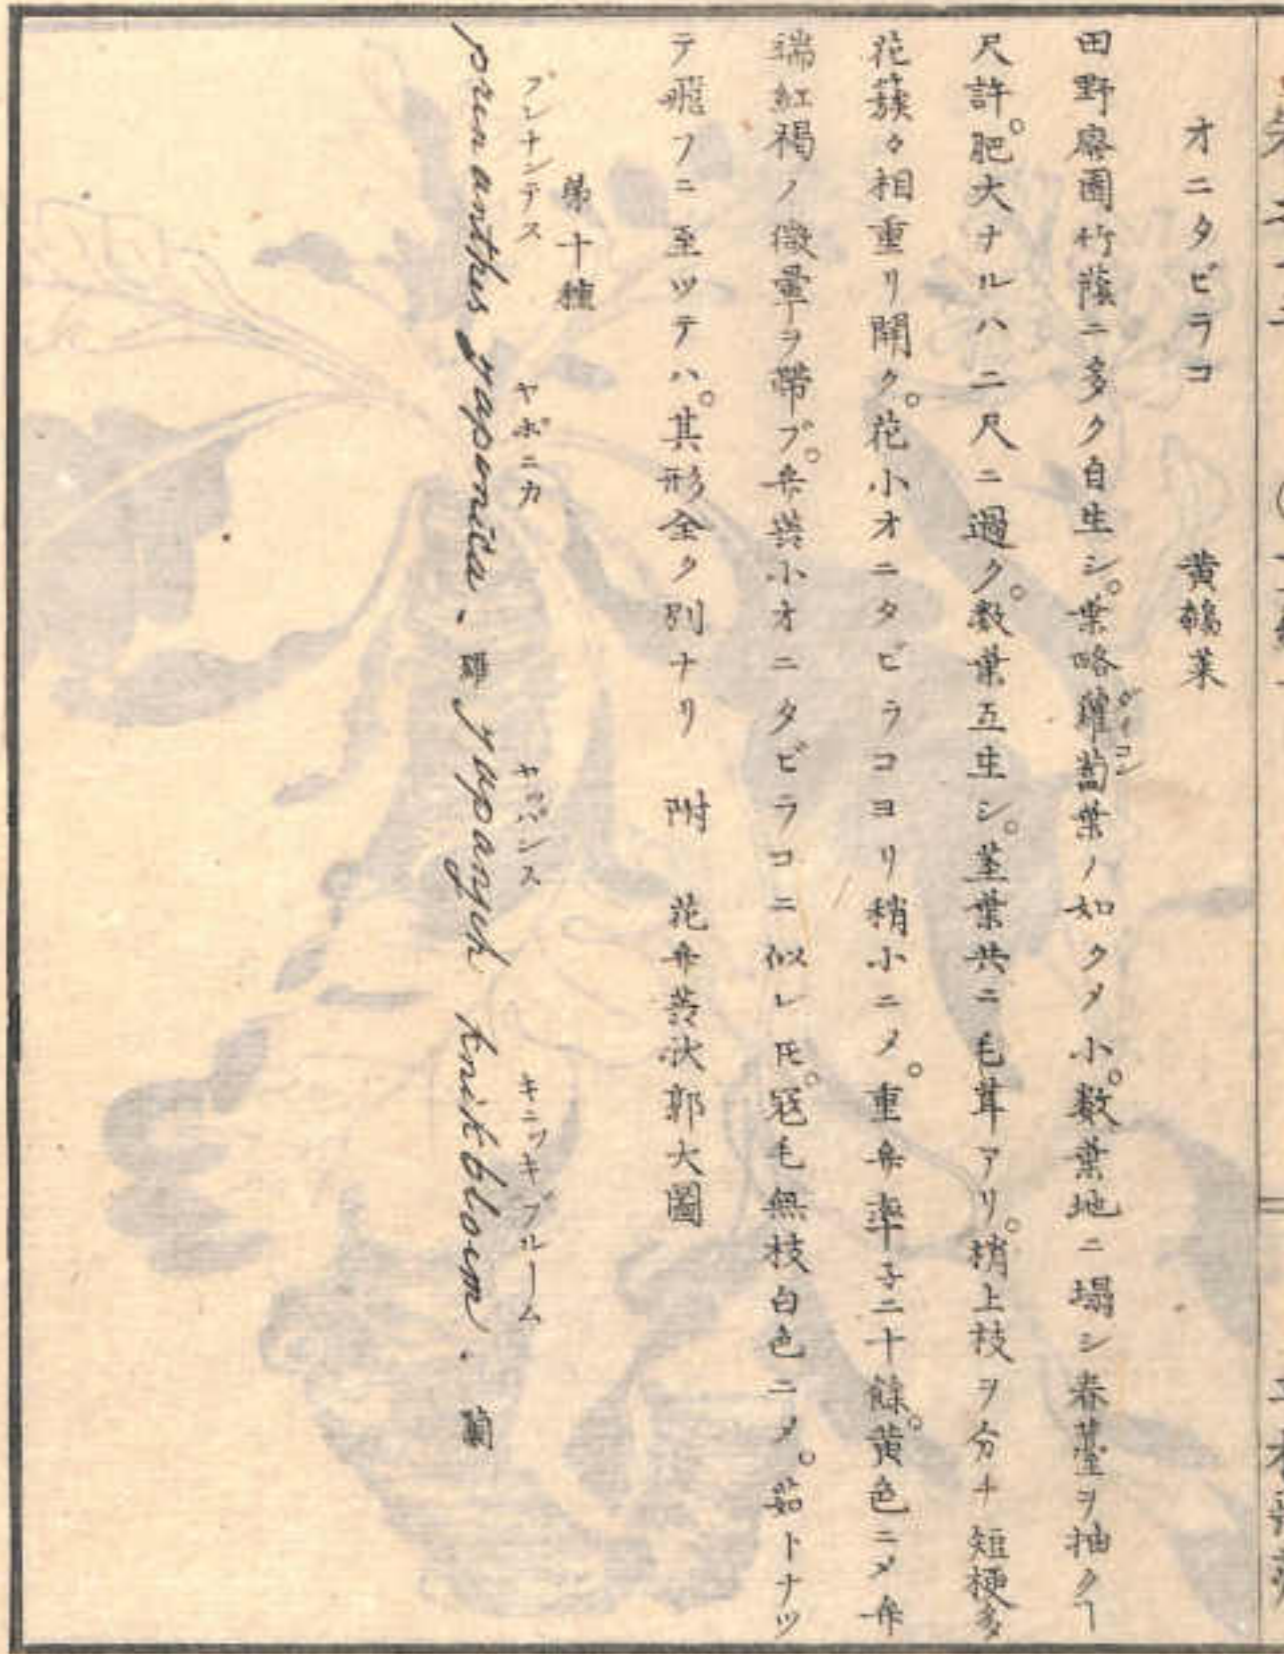 オニタビラコ　黄鵪菜
田野廢圃竹蔭ニ多ク自生シ。葉略蘿蔔葉ノ如クメ小。數葉地ニ塌シ春薹ヲ抽クヿ
ダイコン
尺許。肥大ナルハ二尺ニ過ク。數葉互生シ。莖葉共ニ毛茸アリ。梢上枝ヲ分チ短梗多
花蔟々相重リ開ク。花小オニタビラコヨリ稍小ニメ。重弁率子二十餘。黄色ニメ弁
端紅褐ノ微暈ヲ帶ブ。弁蘂小オニタビラコニ似レ𪜈。冠毛無枝白色ニメ。絮トナツ
テ飛フニ至ツテハ。其形全ク別ナリ　附　花弁蘂郭大圖
第十種
プレナンテス　ヤポニカ　ヤパンス　キニッキブルーム
prenanthes japonica. 羅 japansch knikbloem. 蘭